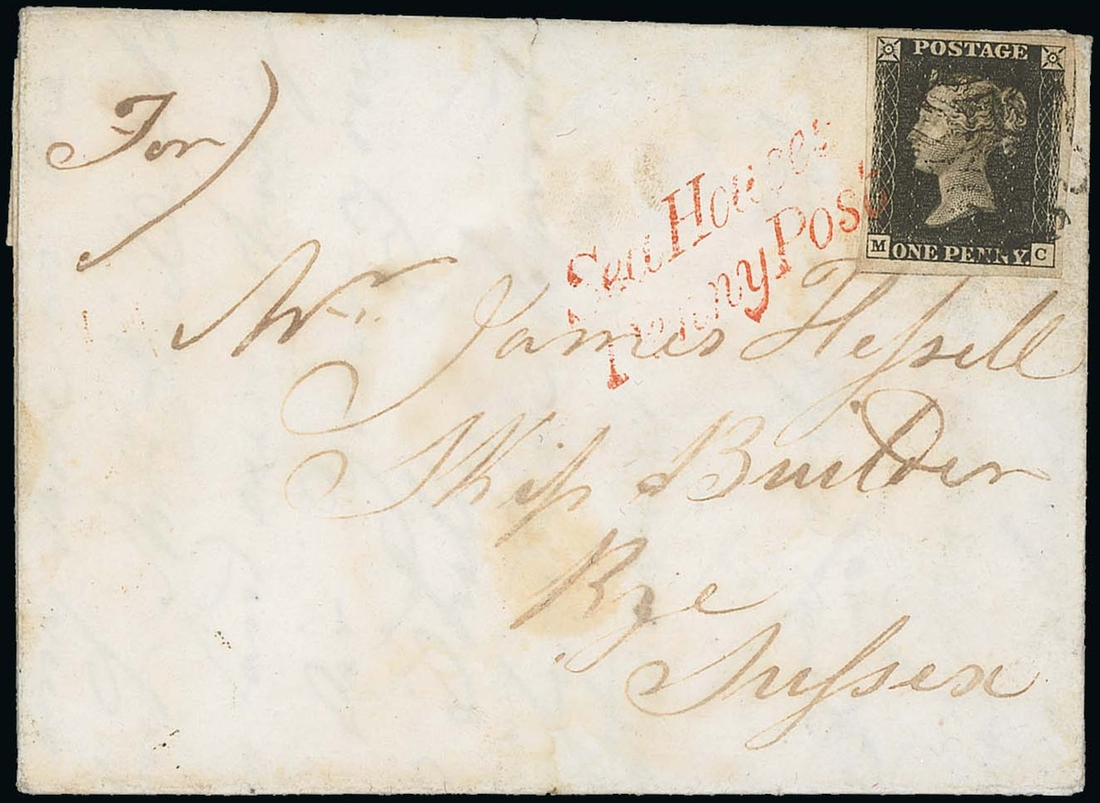 POSTAGE
ONE PENNY
M C
Sea Houses
Penny Post
For)
Mr. James Hessell
Ship Builder
Rye
Sussex